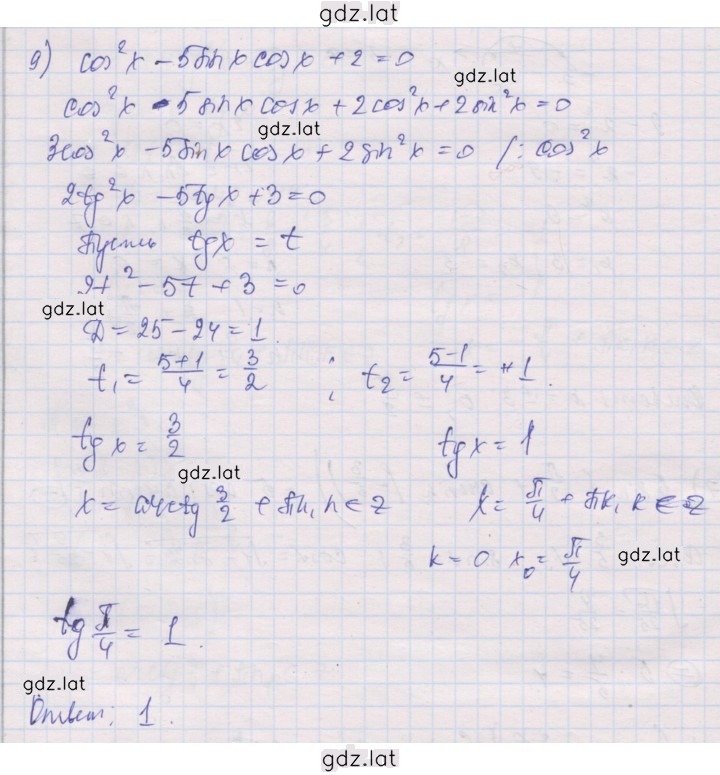 gdz.lat
9) cos²x - 5sinx cosx + 2 = 0
gdz.lat
cos²x - 5sinx cosx + 2cos²x + 2sin²x = 0
gdz.lat
3cos²x - 5sinx cosx + 2sin²x = 0 /: cos²x
2tg²x - 5tgx + 3 = 0
Пусть tgx = t
2t² - 5t + 3 = 0
gdz.lat
D = 25 - 24 = 1.
t₁ = (5+1)/4 = 3/2 ; t₂ = (5-1)/4 = 1.
tgx = 3/2 tgx = 1
gdz.lat
x = arctg 3/2 + πn, n ∈ Z x = π/4 + πk, k ∈ Z
k = 0 x₀ = π/4 gdz.lat
tg π/4 = 1.
gdz.lat
Ответ: 1.
gdz.lat